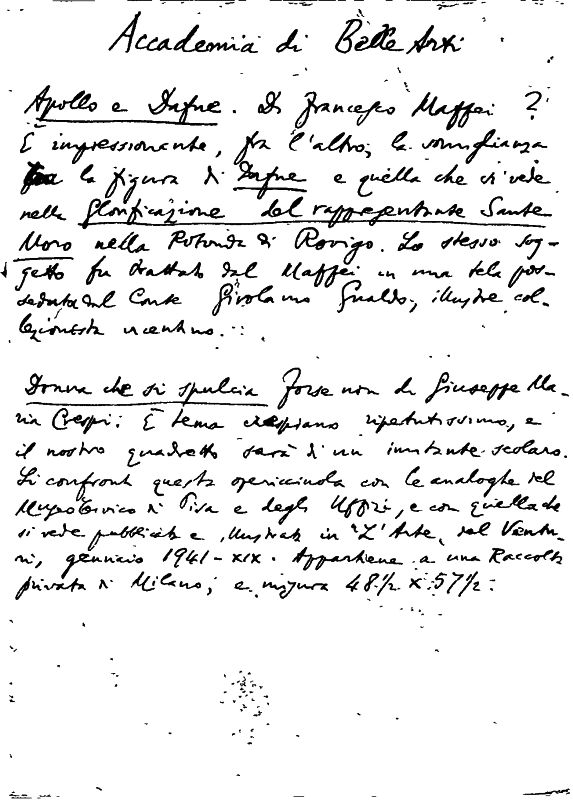 Accademia di Belle Arti
Apollo e Dafne. Di Francesco Maffei ?
È impressionante, fra l'altro, la somiglianza
fra la figura di Dafne e quella che si vede
nella Glorificazione del rappresentante Sante
Moro nella Rotonda di Rovigo. Lo stesso sog-
getto fu trattato dal Maffei in una tela pos-
seduta dal Conte Girolamo Gualdo, illustre col-
lezionista vicentino.
Donna che si spulcia Forse non di Giuseppe Ma-
ria Crespi: È tema crespiano ripetutissimo, e
il nostro quadretto sarà di un imitante scolaro.
Si confronti questa opericciola con le analoghe del
Museo Civico di Pisa e degli Uffizi, e con quella che
si vede pubblicata e illustrata in "L'Arte, del Ventu-
ri, gennaio 1941-XIX. Appartiene a una Raccolta
privata di Milano; e misura 48½ x 57½.